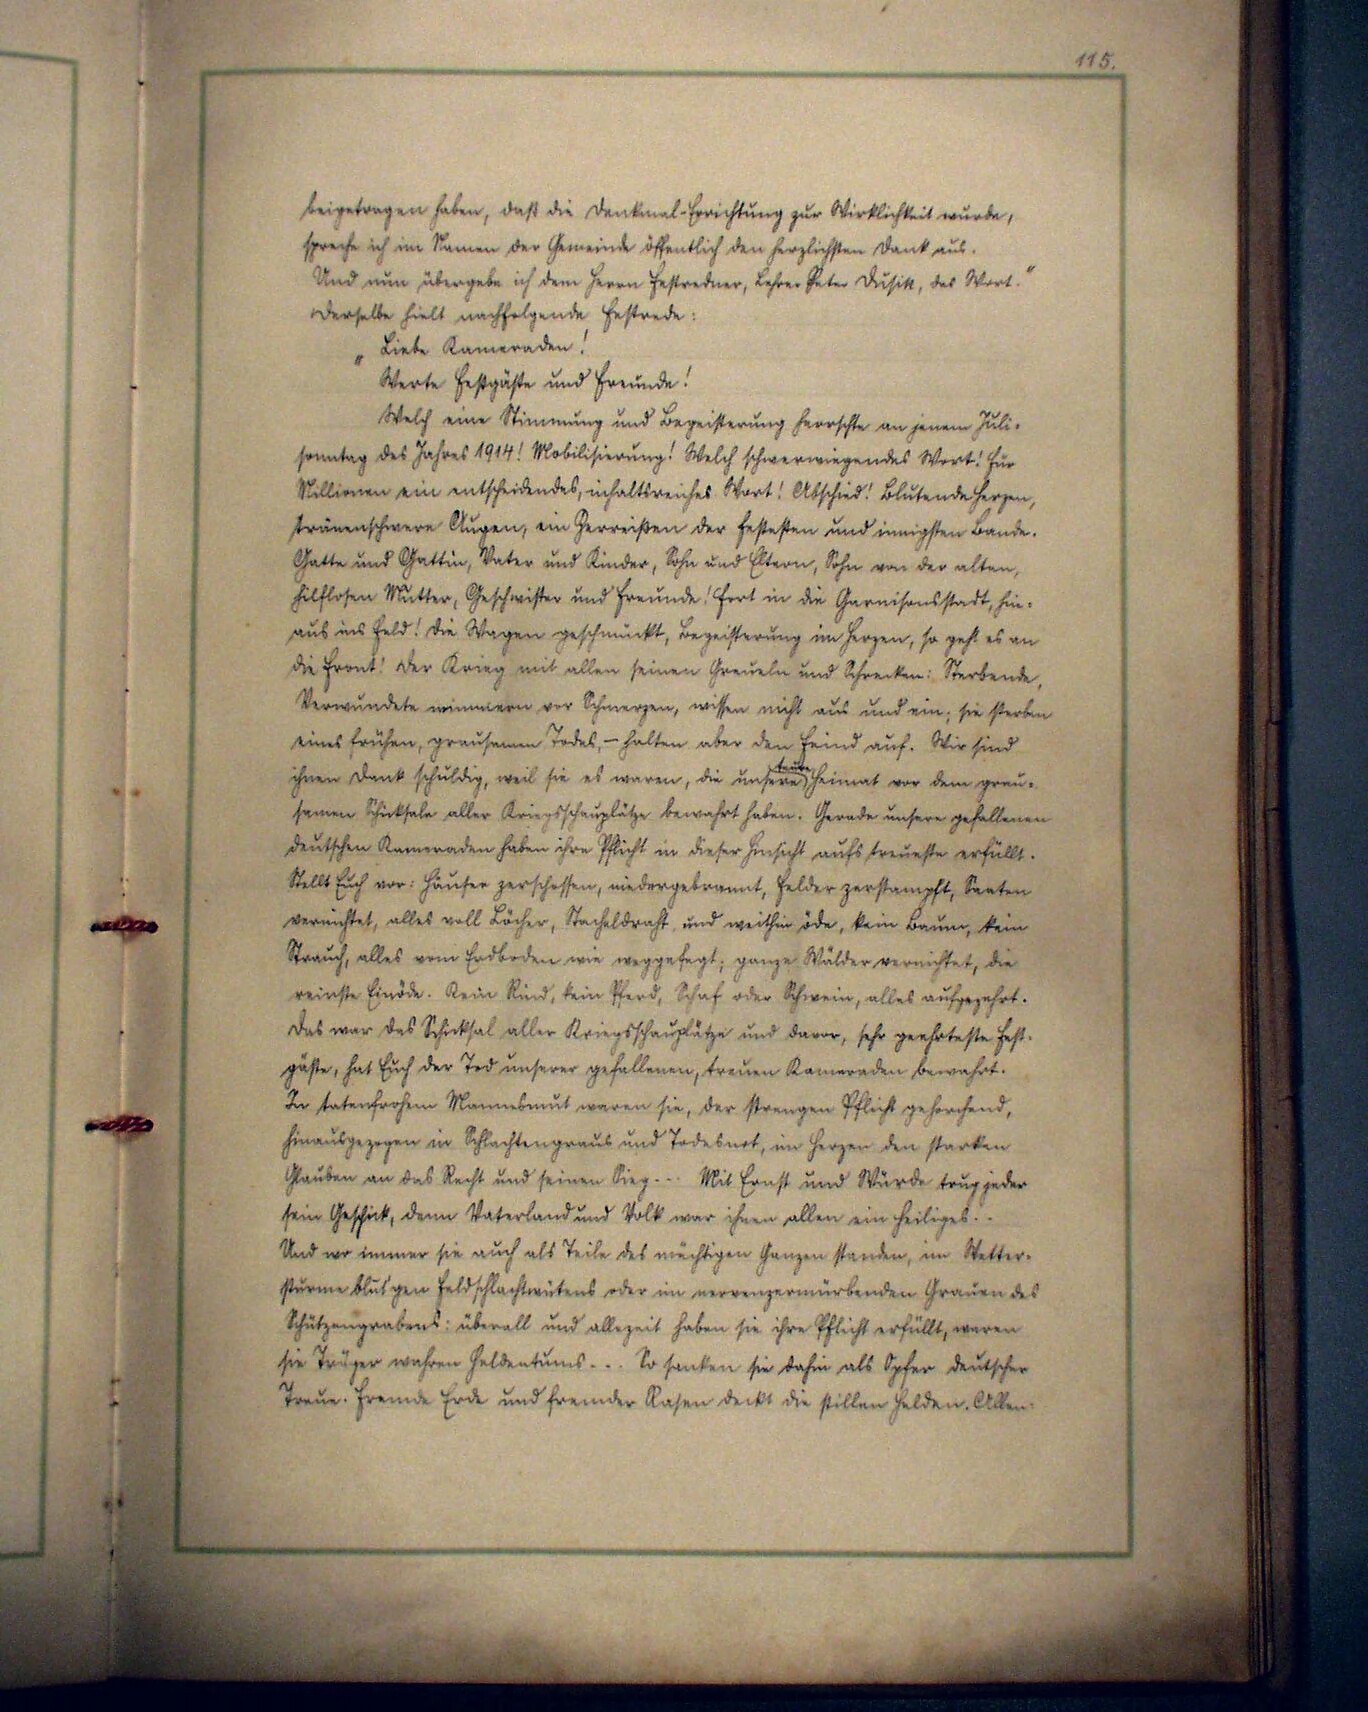 115.
beigetragen haben, daß die Denkmal-Errichtung zur Wirklichkeit wurde,
spreche ich im Namen der Gemeinde öffentlich den herzlichsten Dank aus.
Und nun übergebe ich dem Herrn Festredner, Lehrer Peter Dusik, das Wort."
Derselbe hielt nachfolgende Festrede:
„Liebe Kameraden!
Werte Festgäste und Freunde!
Welch eine Stimmung und Begeisterung herrschte an jenem Juli-
sonntag des Jahres 1914! Mobilisierung! Welch schwerwiegendes Wort! Für
Millionen ein entscheidendes, inhaltsreiches Wort! Abschied! Blutende Herzen,
tränenschwere Augen, ein Zerreißen der festesten und innigsten Bande.
Gatte und Gattin, Vater und Kinder, Sohn und Eltern, Sohn von der alten,
hilflosen Mutter, Geschwister und Freunde! Fort in die Garnisonsstadt, hin-
aus ins Feld! Die Wagen geschmückt, Begeisterung im Herzen, so geht es an
die Front! Der Krieg mit allen seinen Greueln und Schrecken: Sterbende,
Verwundete wimmern vor Schmerzen, wissen nicht aus und ein; sie sterben
eines frühen, grausamen Todes, – halten aber den Feind auf. Wir sind
ihnen Dank schuldig, weil sie es waren, die unsere teure Heimat vor dem grau-
samen Schicksale aller Kriegsschauplätze bewahrt haben. Gerade unsere gefallenen
deutschen Kameraden haben ihre Pflicht in dieser Hinsicht aufs treueste erfüllt.
Stellt Euch vor: Häuser zerschossen, niedergebrannt, Felder zerstampft, Saaten
vernichtet, alles voll Löcher, Stacheldraht, und weithin öde, kein Baum, kein
Strauch, alles vom Erdboden wie weggefegt; ganze Wälder vernichtet, die
reinste Einöde. Kein Rind, kein Pferd, Schaf oder Schwein, alles aufgezehrt.
Das war das Schicksal aller Kriegsschauplätze und davor, sehr geehrteste Fest-
gäste, hat Euch der Tod unserer gefallenen, treuen Kameraden bewahrt.
In tatenfrohem Mannesmut waren sie, der strengen Pflicht gehorchend,
hinausgezogen in Schlachtengraus und Todesnot, im Herzen den starken
Glauben an das Recht und seinen Sieg... Mit Ernst und Würde trug jeder
sein Geschick, denn Vaterland und Volk war ihnen allen ein Heiliges..
Und wo immer sie auch als Teile des mächtigen Ganzen standen, im Wetter-
sturme blut'gen Feldschlachtwütens oder im nervenzermürbenden Grauen des
Schützengrabens: überall und allezeit haben sie ihre Pflicht erfüllt, waren
sie Träger wahren Heldentums... So sanken sie dahin als Opfer deutscher
Treue. Fremde Erde und fremder Rasen deckt die stillen Helden. Allen-